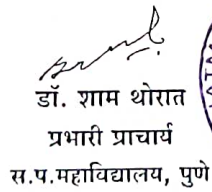 डॉ. शाम थोरात
प्रभारी प्राचार्य
स.प.महाविद्यालय, पुणे